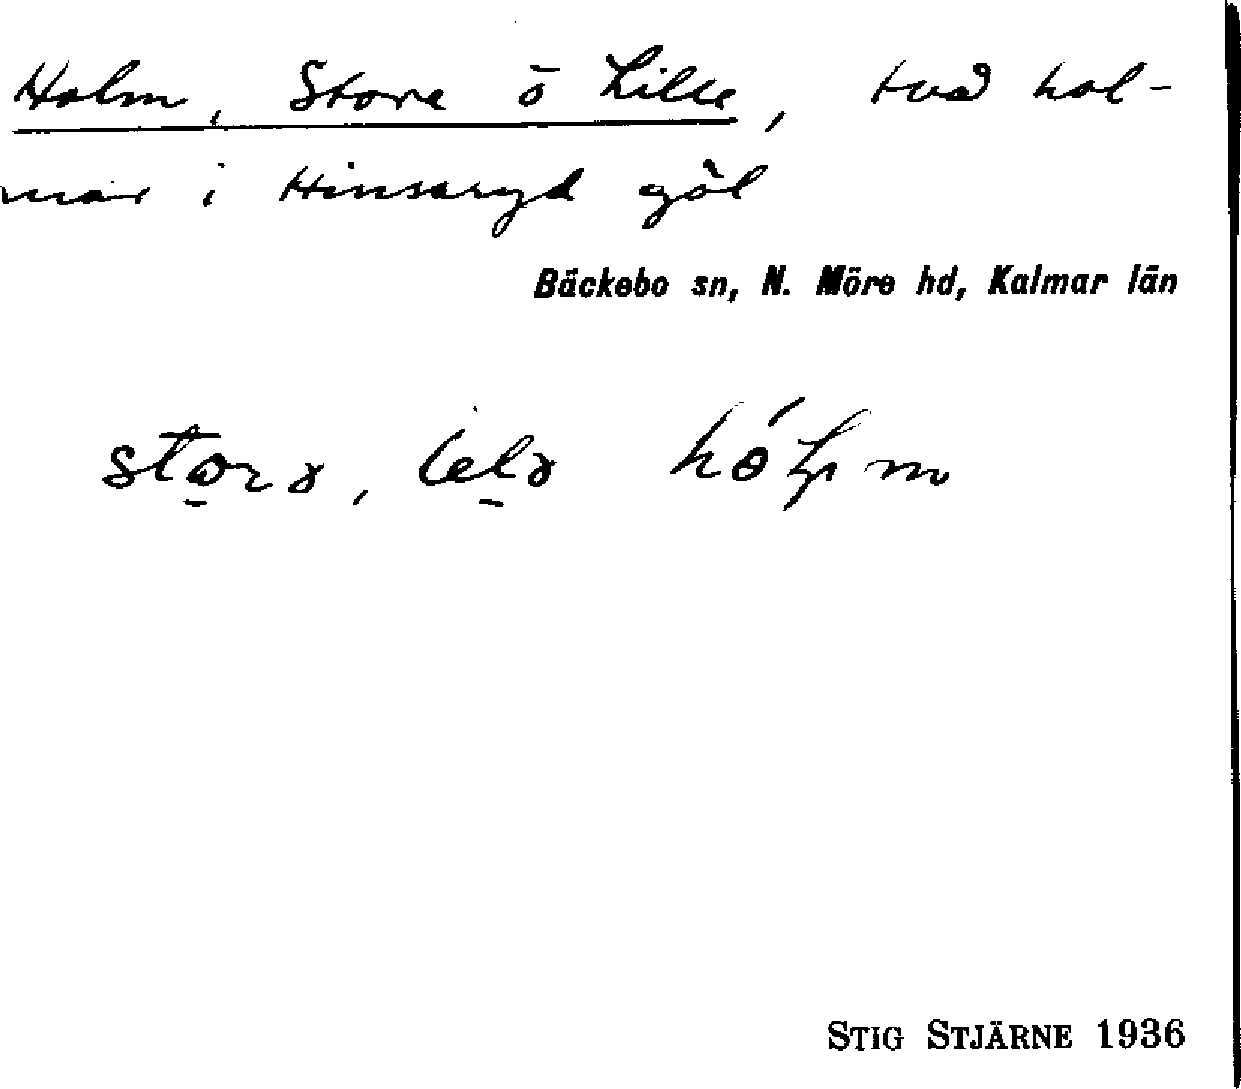 Holm, Store ō Lille, två hol-
mar i Hinsaryd göl
Bäckebo sn, N. Möre hd, Kalmar län
STIG STJÄRNE 1936